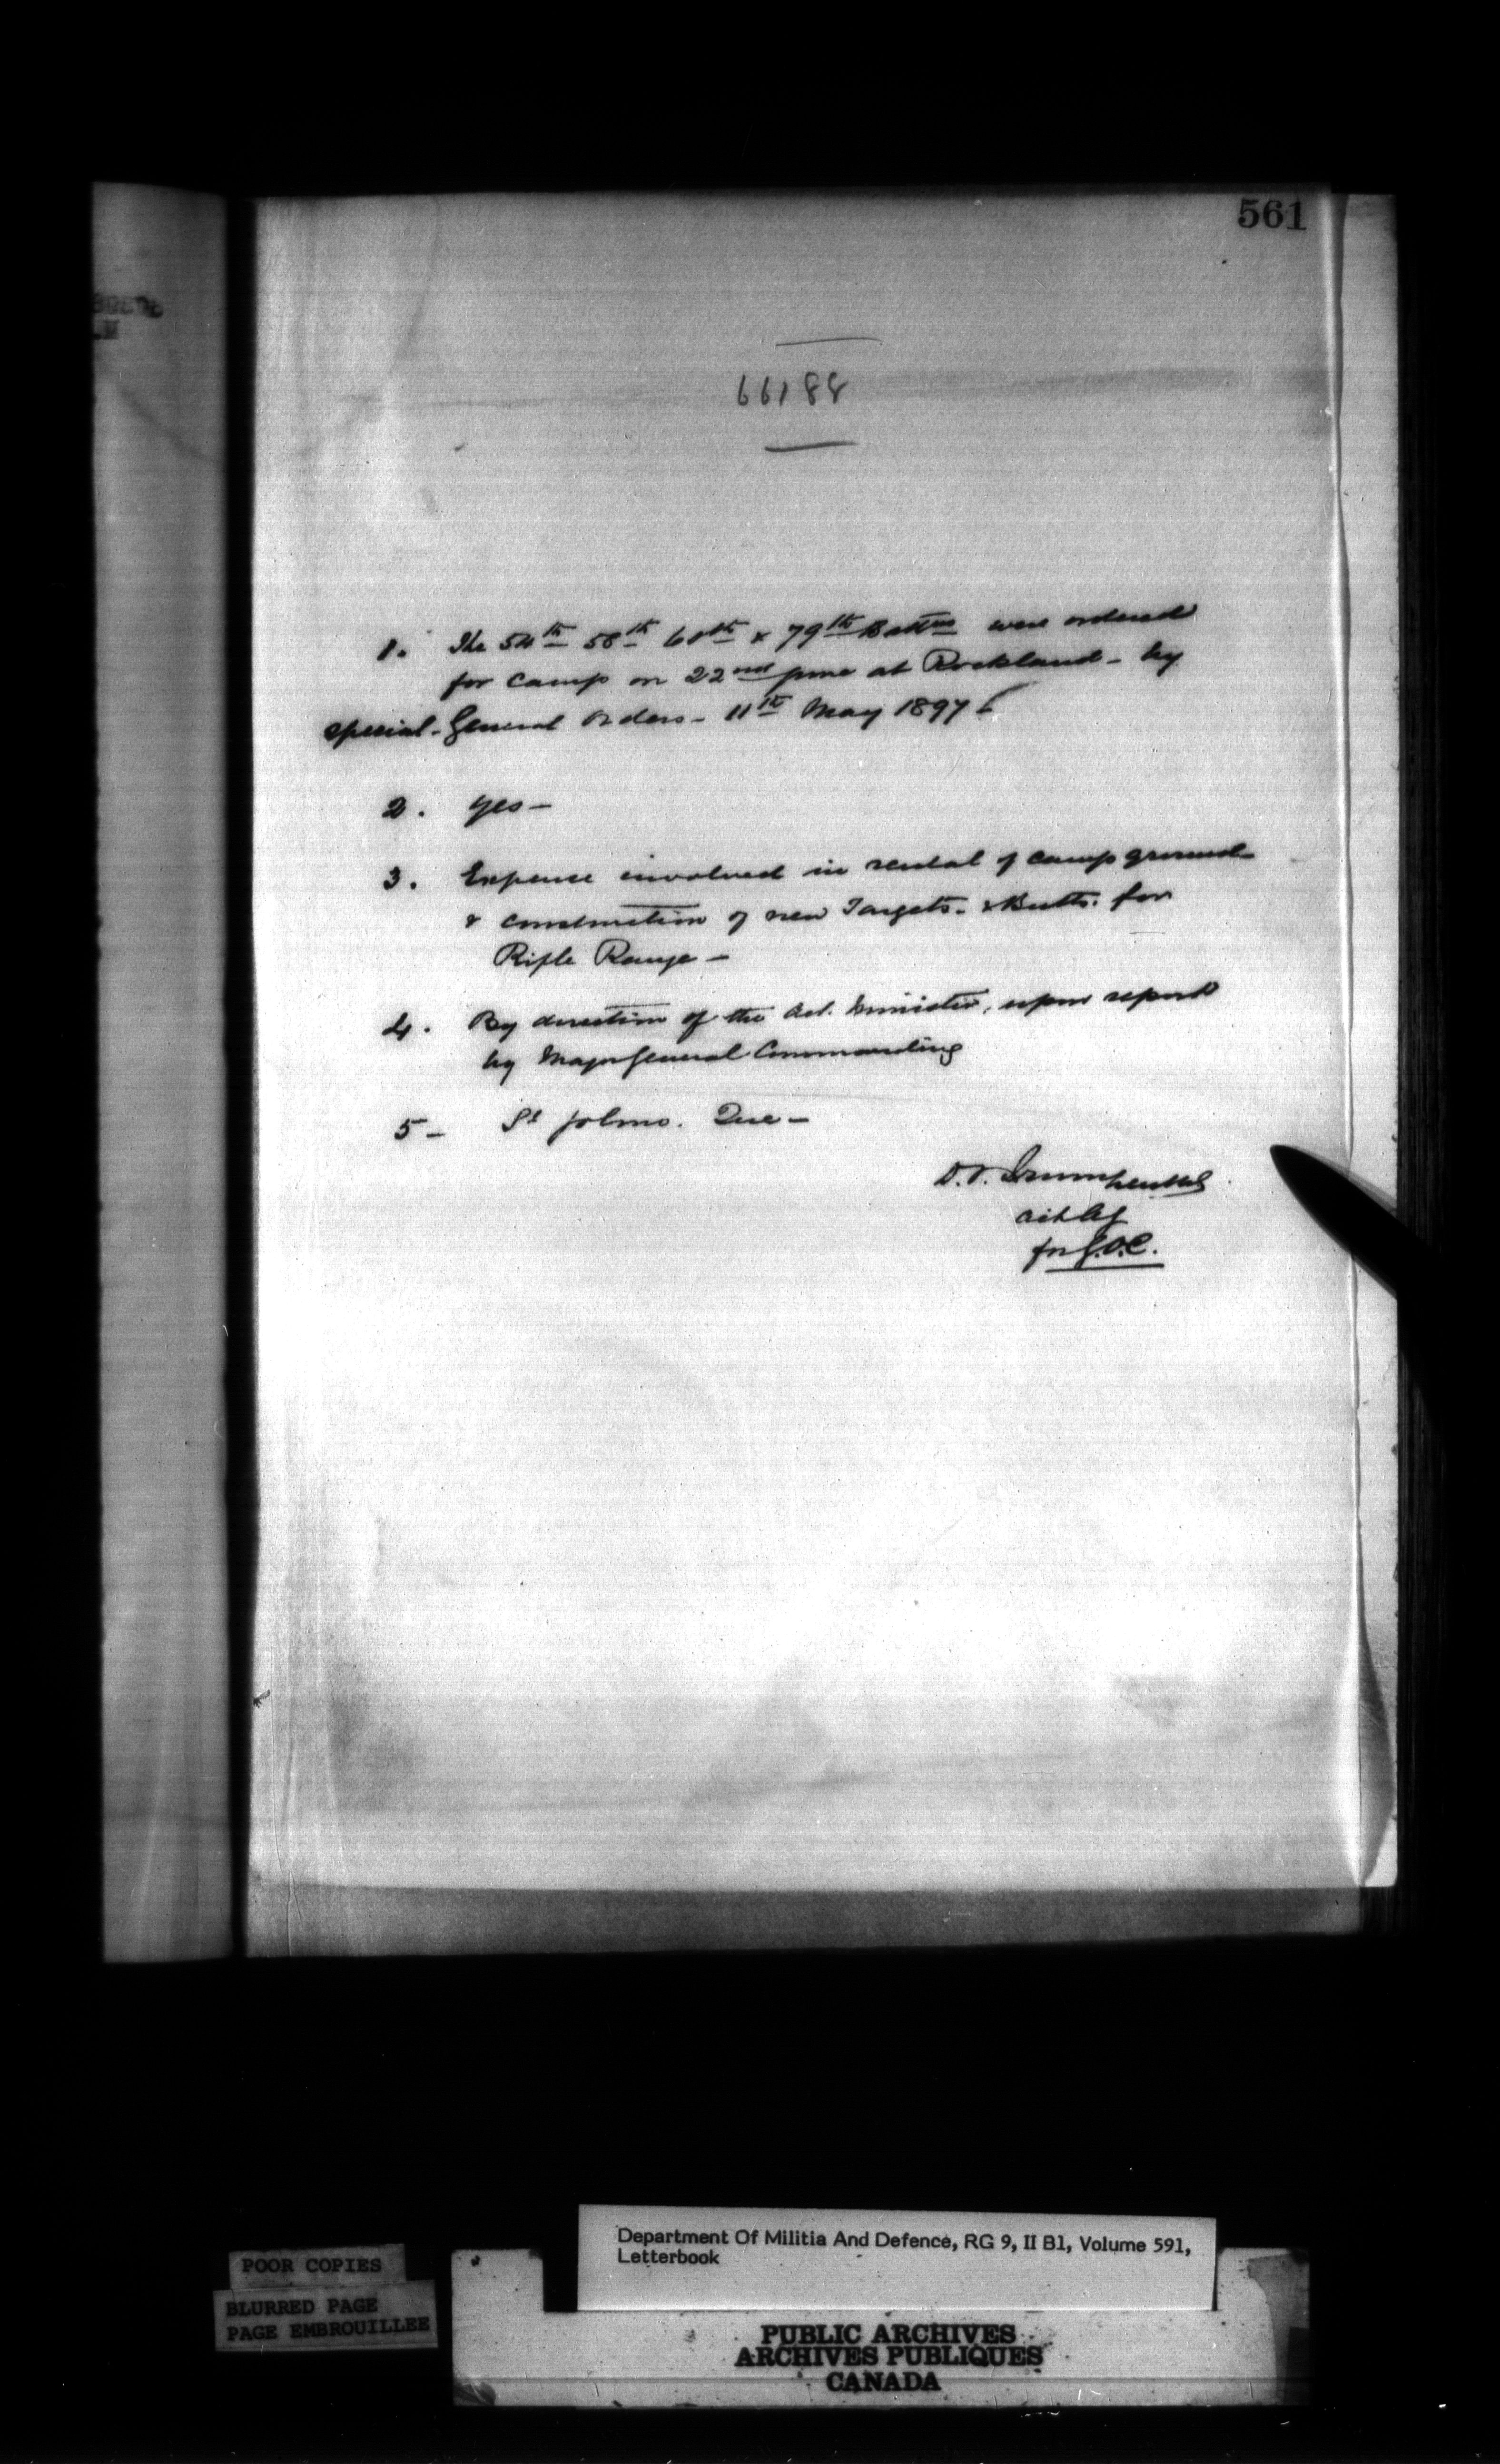 561
66188
1. The 54th 58th 60th & 79th Battns were ordered
for camp on 22nd June at Rockland - by
special - General Orders - 11th May 1897
2. Yes -
3. Expense involved in rental of camp ground
& construction of new Targets - & Butts. for
Rifle Range -
4. By direction of the Act. Minister, upon report
by Major General Commanding
5 - St Johns. Que -
D.V.
for G.O.C.
Department Of Militia And Defence, RG 9, II B1, Volume 591,
Letterbook
POOR COPIES
BLURRED PAGE
PAGE EMBROUILLEE
PUBLIC ARCHIVES
ARCHIVES PUBLIQUES
CANADA